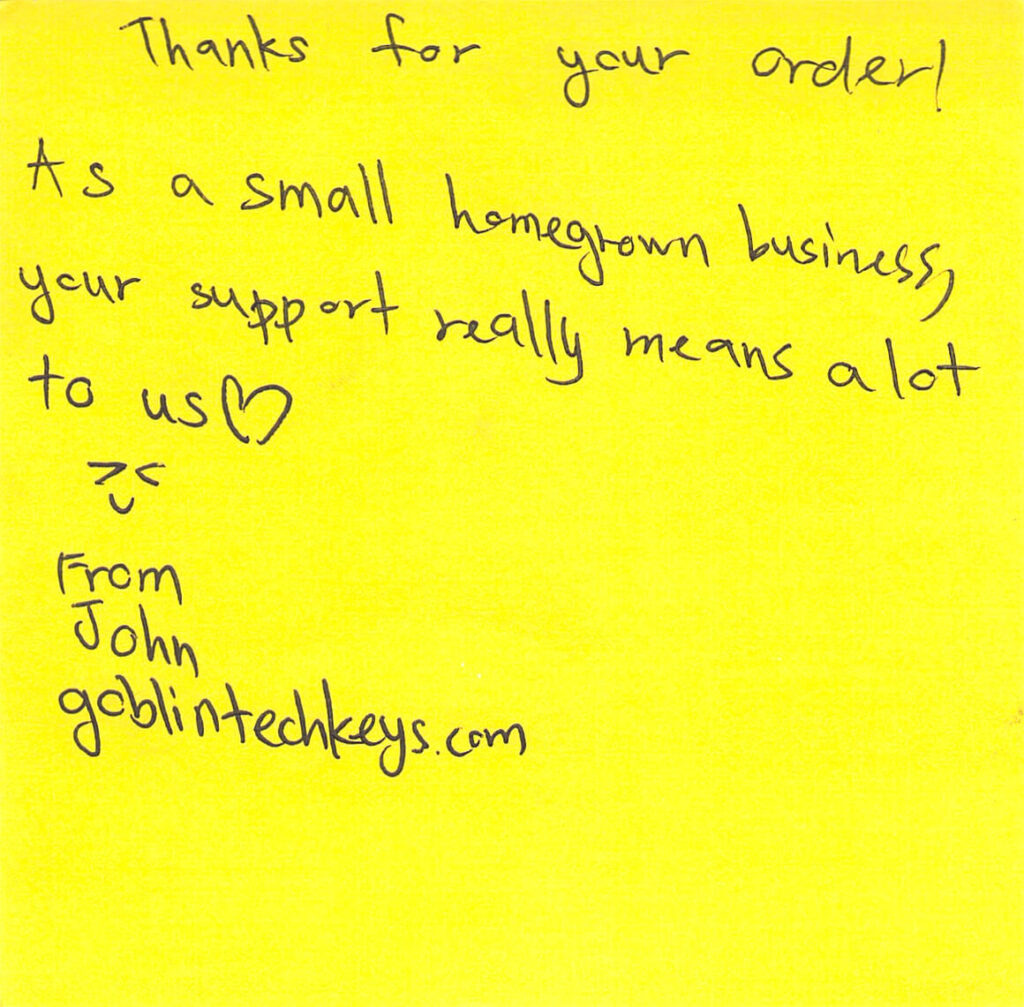 Thanks for your order!
As a small homegrown business,
your support really means a lot
to us♡
>‿<
From
John
goblintechkeys.com